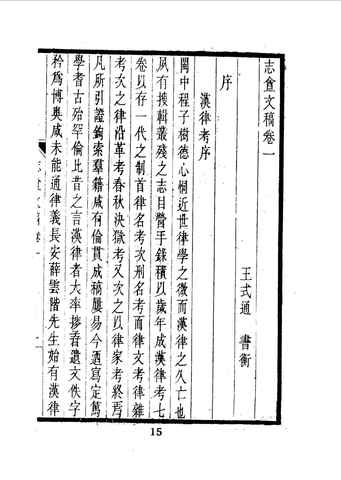 志盦文稿卷一
王式通 書衡
序
漢律考序
閩中程子樹德心恫近世律學之微而漢律之久亡也
夙有搜輯叢殘之志目營手錄積以歲年成漢律考七
卷以存一代之制首律名考次刑名考而律文考律雜
考次之律沿革考春秋決獄考又次之以律家考終焉
凡所引證鉤索羣籍咸有倫貫成稿屢易今迺寫定篤
學耆古殆罕倫比昔之言漢律者大率摭奇遺文佚字
矜為博奧咸未能通律義長安薛雲階先生始有漢律
15